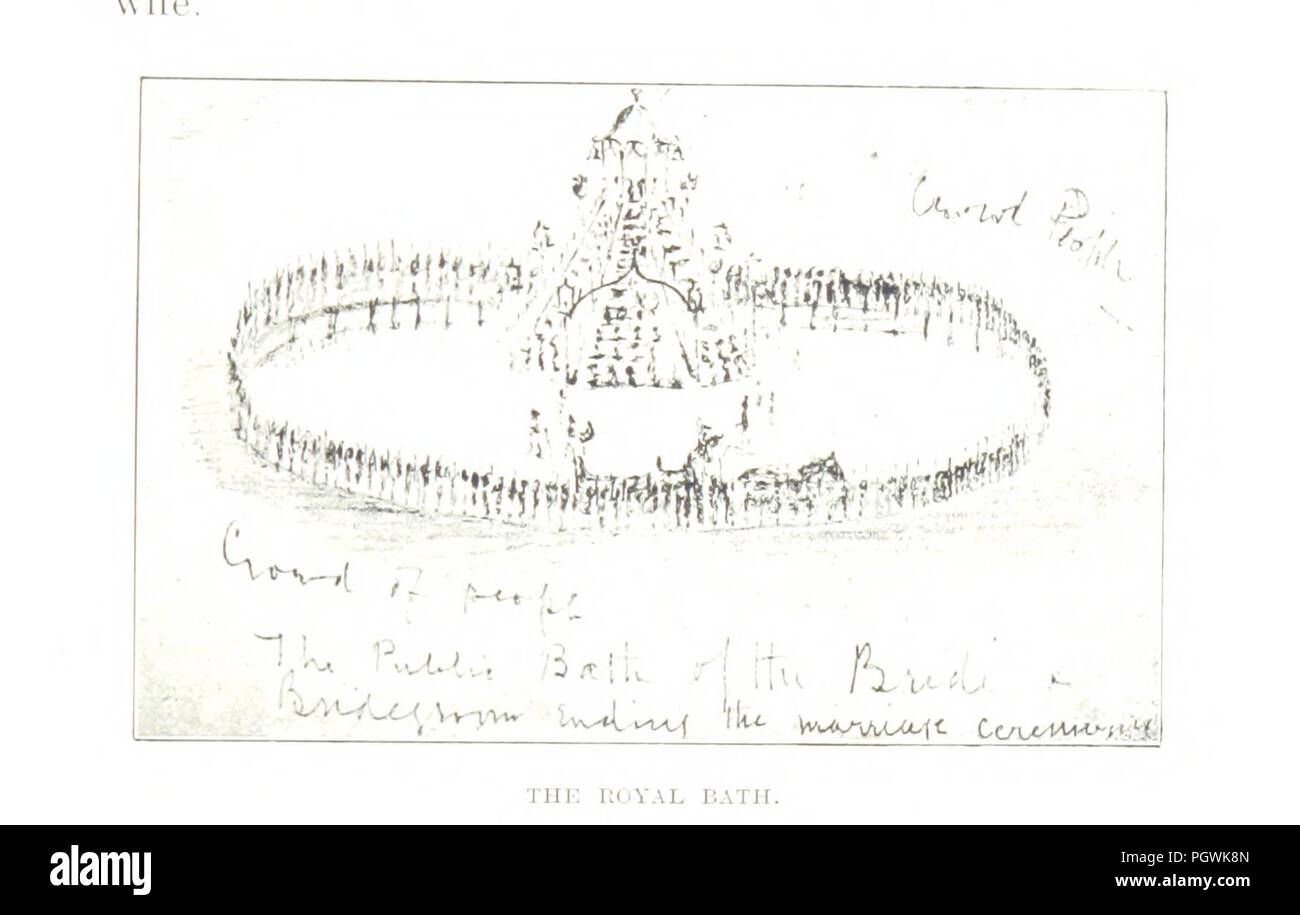 wife.
Crowd People
Crowd of people
The Public Bath of the Bride &
Bridegroom Ending the marriage ceremony
THE ROYAL BATH.
alamy
Image ID: PGWK8N
www.alamy.com